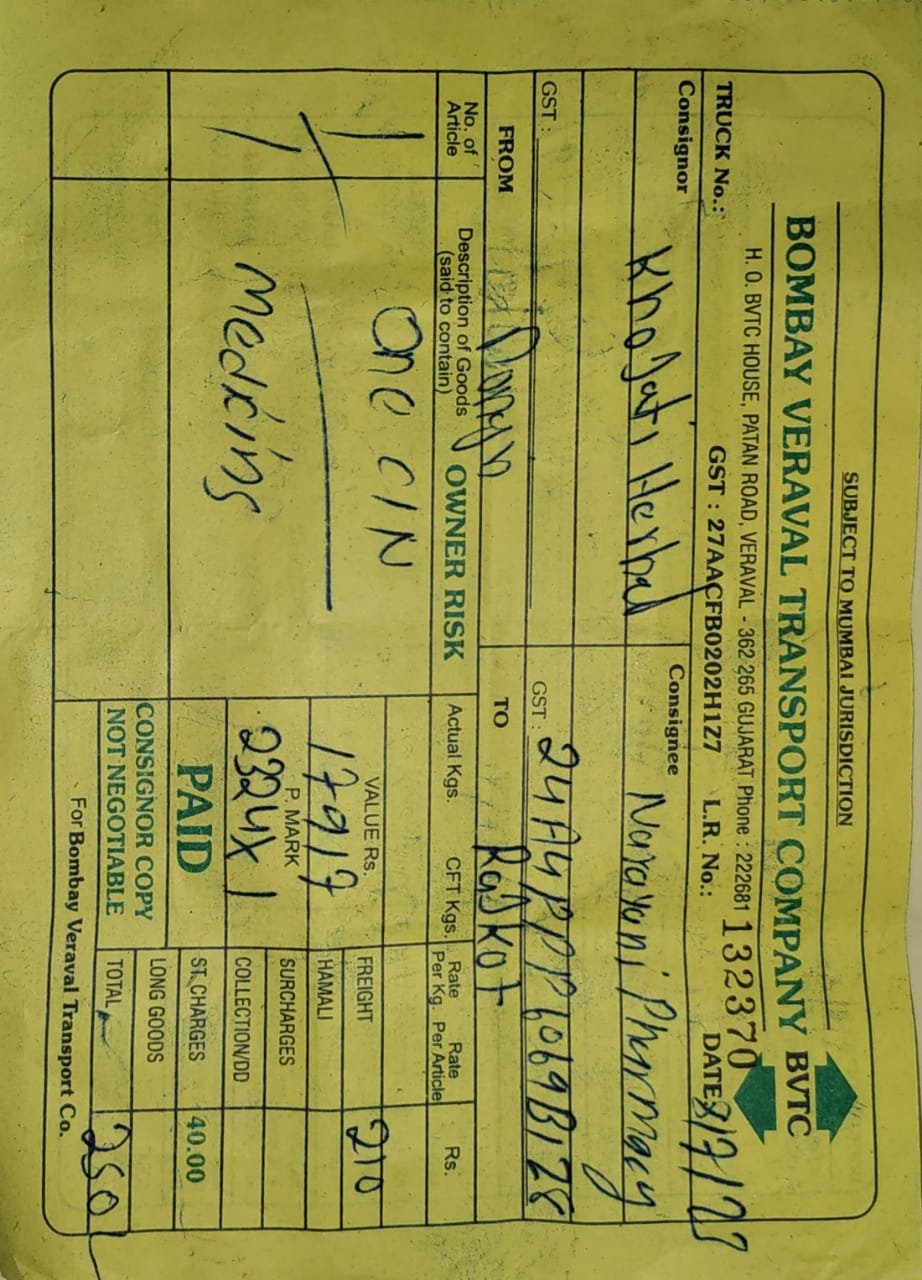 SUBJECT TO MUMBAI JURISDICTION
BOMBAY VERAVAL TRANSPORT COMPANY BVTC
H. O. BVTC HOUSE, PATAN ROAD, VERAVAL - 362 265 GUJARAT Phone : 222681
GST : 27AACFB0202H1Z7 L.R. No.: 132370
TRUCK No.: DATE:
Consignor Khojati Herbal
Consignee Narayani Pharmacy
GST :
GST : 24AYPPP6069B1Z8
FROM
TO Rajkot
No. of Article
Description of Goods (said to contain) OWNER RISK
Actual Kgs. CFT Kgs. Rate Per Kg. Rate Per Article Rs.
1 One C/N
VALUE Rs. 17917
FREIGHT 210
HAMALI
P. MARK 2324X1
SURCHARGES
COLLECTION/DD
PAID
ST. CHARGES 40.00
CONSIGNOR COPY
NOT NEGOTIABLE
LONG GOODS
TOTAL 250
For Bombay Veraval Transport Co.